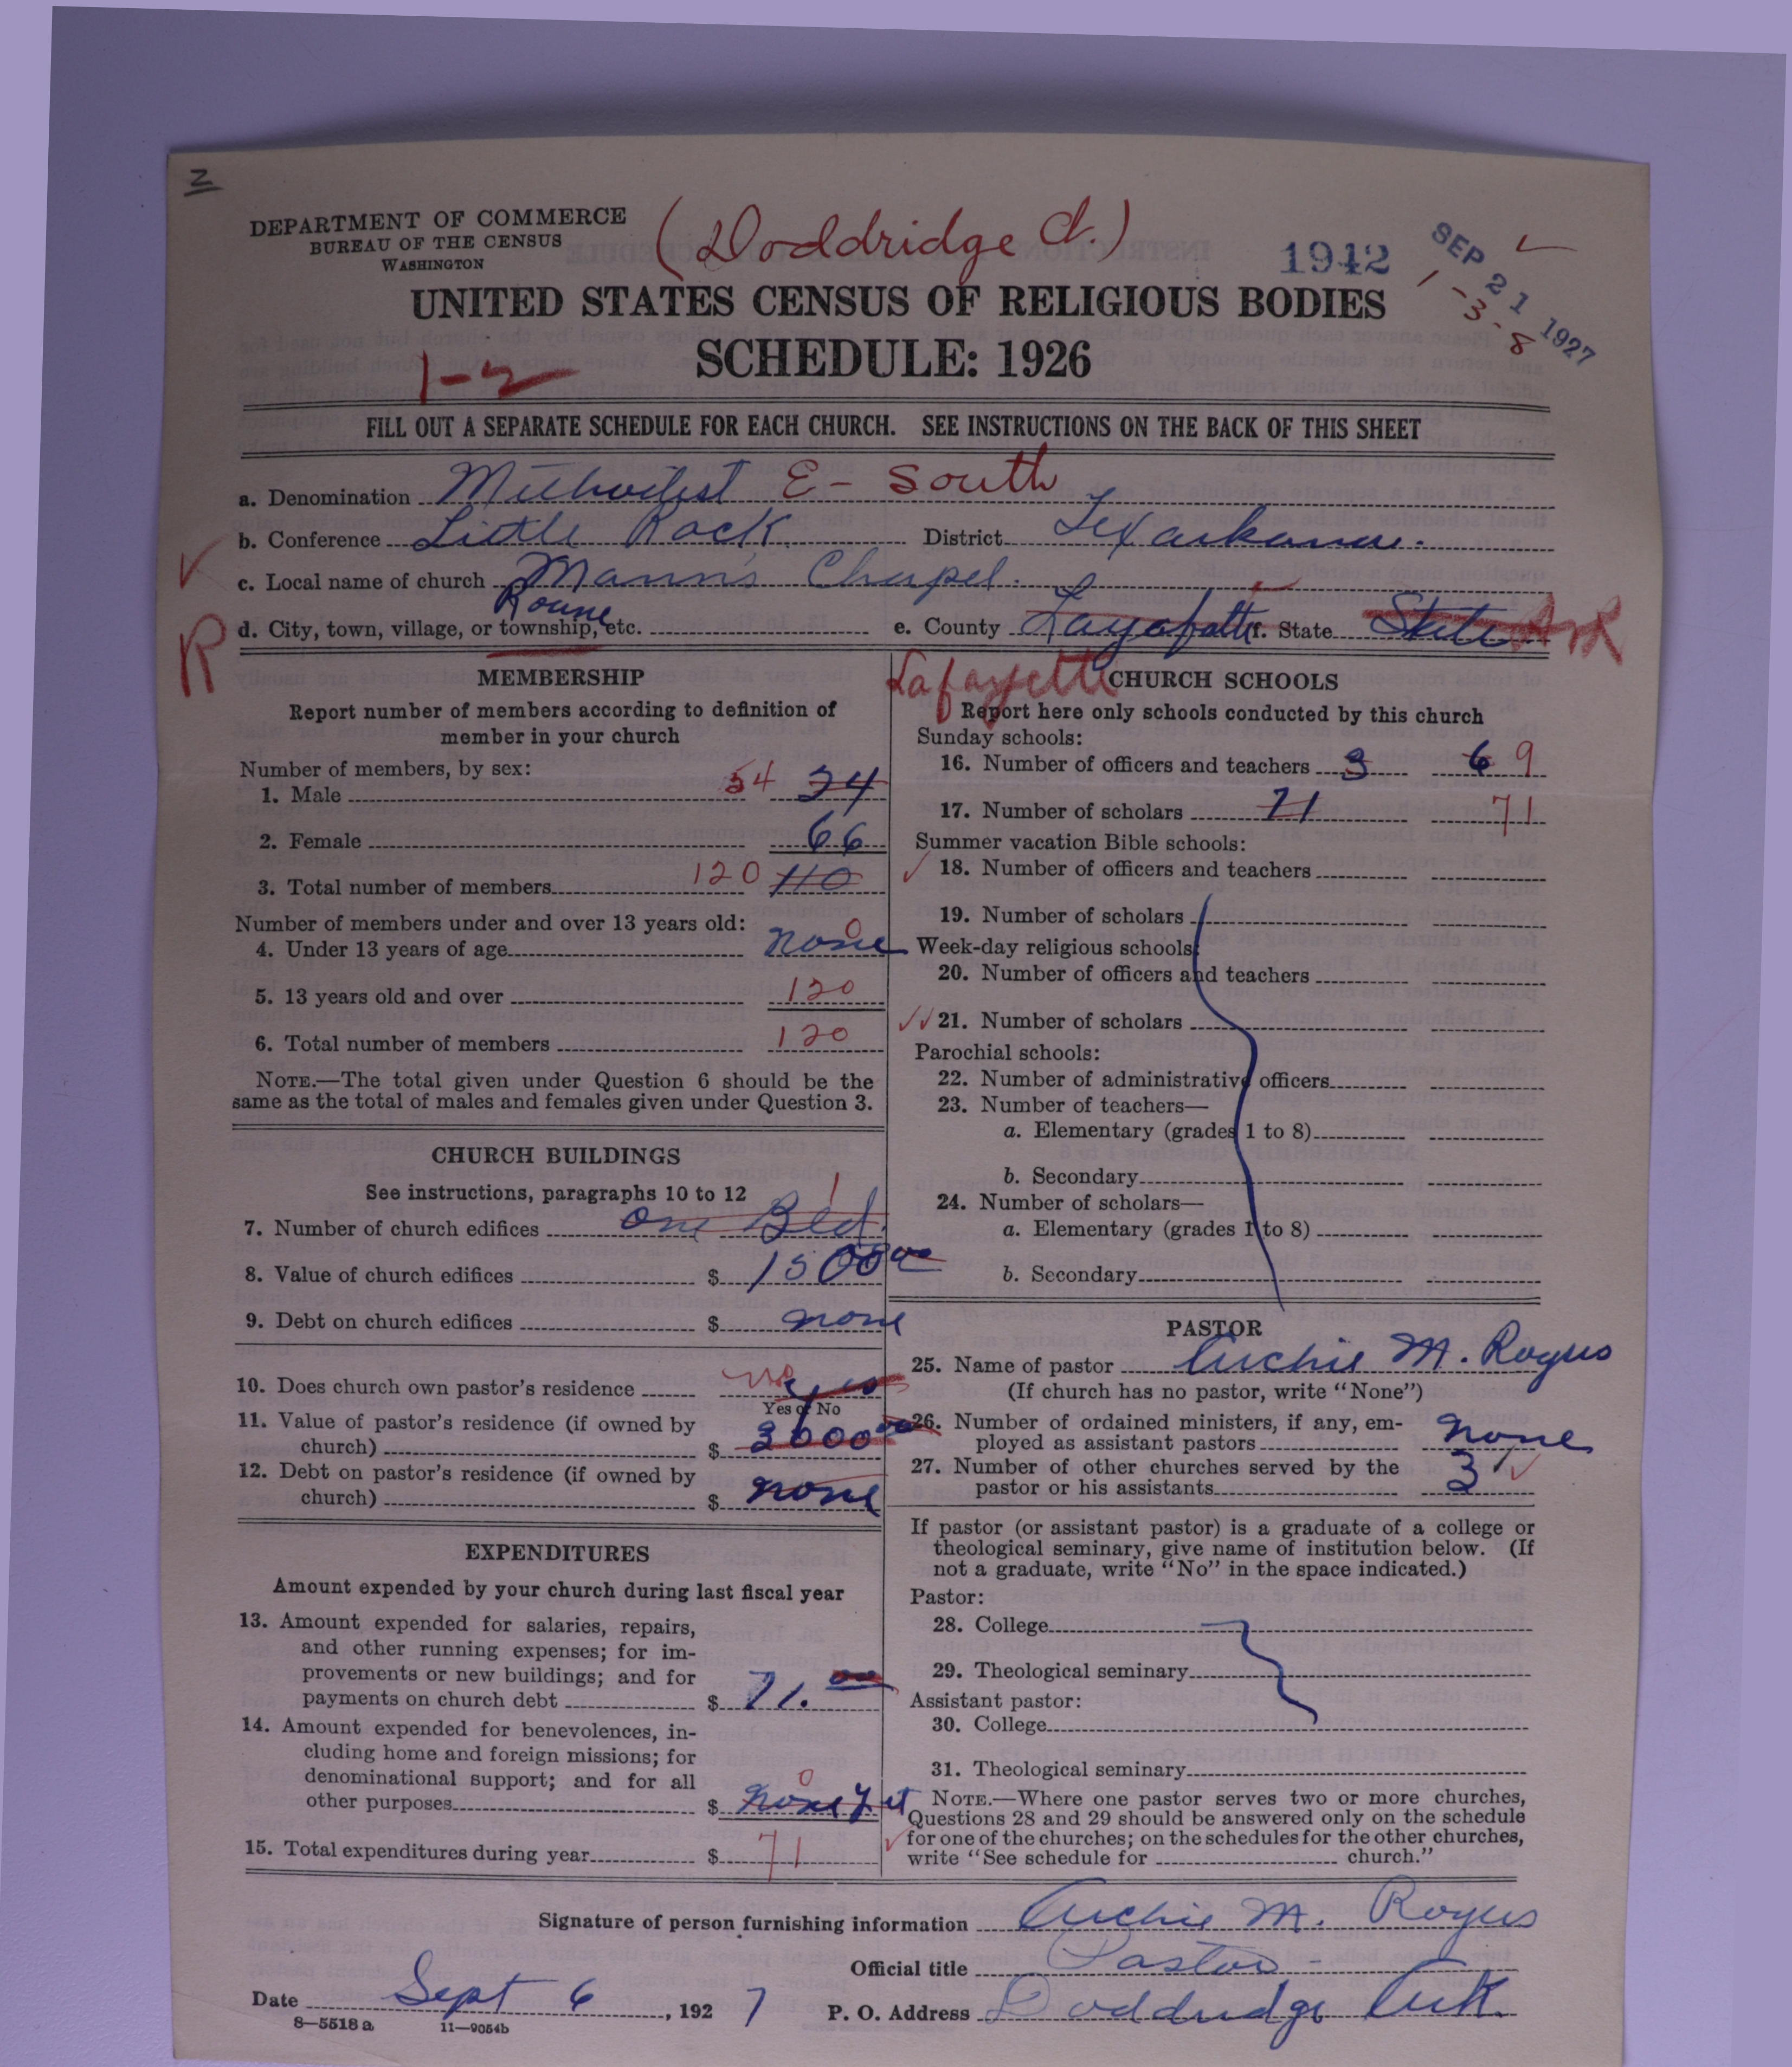 Z
DEPARTMENT OF COMMERCE
BUREAU OF THE CENSUS
WASHINGTON
(Doddridge Ct.)
1942
SEP 21 1927
1-3-8
UNITED STATES CENSUS OF RELIGIOUS BODIES
SCHEDULE: 1926
1-2
FILL OUT A SEPARATE SCHEDULE FOR EACH CHURCH. SEE INSTRUCTIONS ON THE BACK OF THIS SHEET
a. Denomination Methodist E- South
b. Conference Little Rock District Texarkana.
c. Local name of church Mann's Chapel.
R d. City, town, village, or township, etc. e. County f. State State Ark
Lafayette
MEMBERSHIP
Report number of members according to definition of
member in your church
Number of members, by sex:
1. Male 54
2. Female 66
3. Total number of members 120 110
Number of members under and over 13 years old:
4. Under 13 years of age none 0
5. 13 years old and over 120
6. Total number of members 120
NOTE.—The total given under Question 6 should be the
same as the total of males and females given under Question 3.
CHURCH BUILDINGS
See instructions, paragraphs 10 to 12
7. Number of church edifices one Bld. 1
8. Value of church edifices $ 1500 00
9. Debt on church edifices $ none
10. Does church own pastor's residence no yes
Yes or No
11. Value of pastor's residence (if owned by
church) $ 3000 00
12. Debt on pastor's residence (if owned by
church) $ none
EXPENDITURES
Amount expended by your church during last fiscal year
13. Amount expended for salaries, repairs,
and other running expenses; for im-
provements or new buildings; and for
payments on church debt $ 71. 00
14. Amount expended for benevolences, in-
cluding home and foreign missions; for
denominational support; and for all
other purposes $ none yet 0
15. Total expenditures during year $ 71
CHURCH SCHOOLS
Report here only schools conducted by this church
Sunday schools:
16. Number of officers and teachers 3 6 9
17. Number of scholars 71 71
Summer vacation Bible schools:
18. Number of officers and teachers
19. Number of scholars
Week-day religious schools:
20. Number of officers and teachers
21. Number of scholars
Parochial schools:
22. Number of administrative officers
23. Number of teachers—
a. Elementary (grades 1 to 8)
b. Secondary
24. Number of scholars—
a. Elementary (grades 1 to 8)
b. Secondary
PASTOR
25. Name of pastor Archie M. Rogers
(If church has no pastor, write "None")
26. Number of ordained ministers, if any, em-
ployed as assistant pastors none
27. Number of other churches served by the
pastor or his assistants 3
If pastor (or assistant pastor) is a graduate of a college or
theological seminary, give name of institution below. (If
not a graduate, write "No" in the space indicated.)
Pastor:
28. College
29. Theological seminary
Assistant pastor:
30. College
31. Theological seminary
NOTE.—Where one pastor serves two or more churches,
Questions 28 and 29 should be answered only on the schedule
for one of the churches; on the schedules for the other churches,
write "See schedule for church."
Signature of person furnishing information Archie M. Rogers
Official title Pastor
Date Sept 6, 1927 P. O. Address Doddridge Ark.
8—5518 a 11—9054b